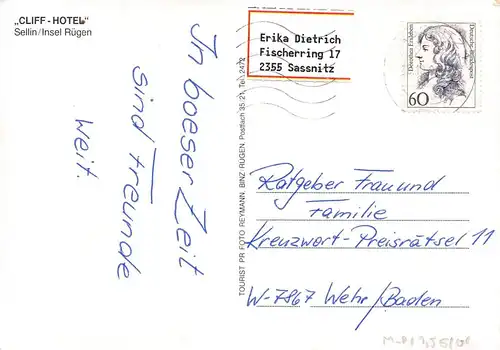 „CLIFF - HOTEL"
Sellin/Insel Rügen
In boeser Zeit
sind Freunde
weit.
TOURIST PR FOTO REYMANN, BINZ-RÜGEN, Postfach 35:21, Tel. 2472
Erika Dietrich
Fischerring 17
2355 Sassnitz
Dorothea Erxleben
Deutsche Bundespost
60
Ratgeber Frau und
Familie
Kreuzwort-Preisrätsel 11
W-7867 Wehr/Baden